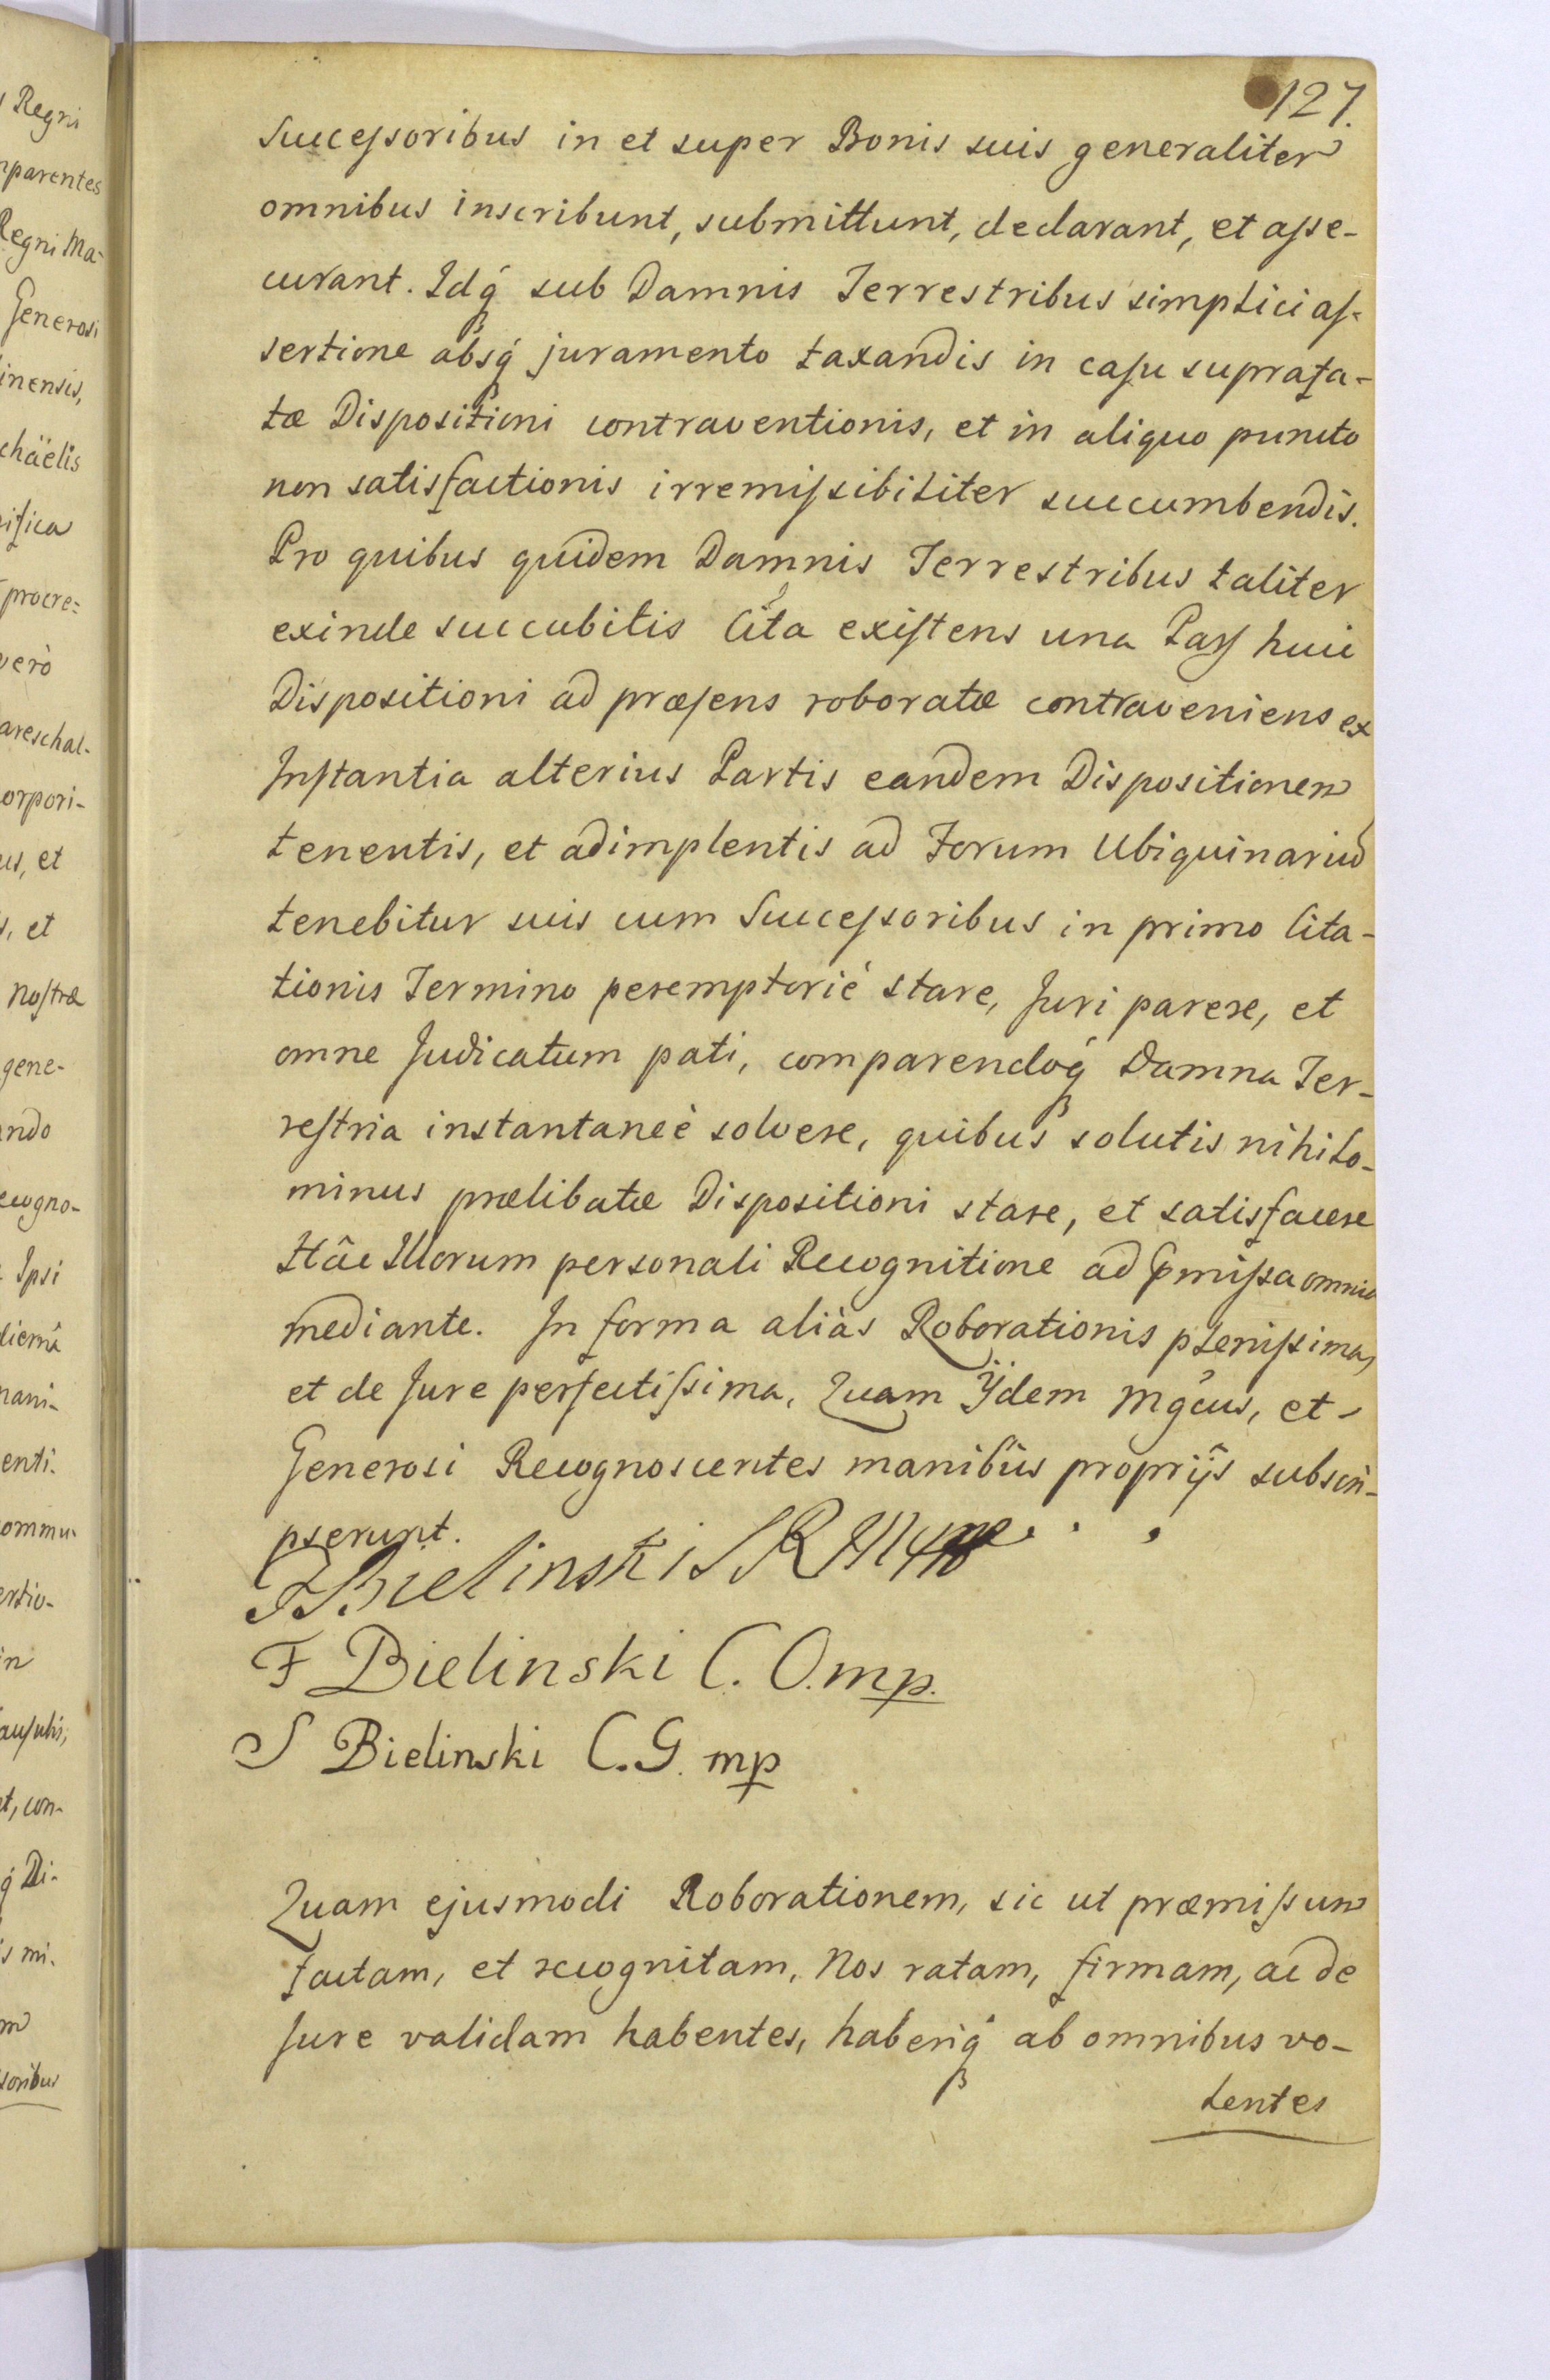 127.
Succeſsoribus in et super Bonis suis generaliter
omnibus inscribunt, submittunt, declarant, et aſse-
curant. Idq́ sub Damnis Terrestribus simplici aſ-
sertione absq́ juramento taxandis in caſu suprafa-
tæ Dispositioni contraventionis, et in aliquo puncto
non satisfactionis irremiſsibiliter succumbendis.
Pro quibus quidem Damnis Terrestribus taliter
exinde succubitis Cita exiſtens una Parſ huic
Dispositioni ad præſens roboratæ contraveniens ex
Inſtantia alterius Partis eandem Dispositionem
tenentis, et adimplentis ad Forum Ubiquinariũ
tenebitur suis cum Succeſsoribus in primo Cita-
tionis Termino peremptorié stare, Juri parere, et
omne Judicatum pati, comparendoq́ Damna Ter-
reſtria instantaneè solvere, quibus solutis nihilo-
minus prælibatæ Dispositioni stare, et satisfacere
Hâc Illorum personali Recognitione ad p̃miſsa omnia
mediante. In forma aliàs Roborationis pleniſsima,
et de Jure perfectiſsima. Quam Ijdem Mgcus, et
Generosi Recognoscentes manibus proprijs subscri-
pserunt.
F Bielinski
F Bielinski C. O. mp.
S Bielinski C. G. mp
Quam ejusmodi Roborationem, sic ut præmiſsum
factam, et recognitam, Nos ratam, firmam, ac de
Jure validam habentes, haberiq́ ab omnibus vo-
lentes
Regni
mparentes
Regni Ma-
Generosi
inensis,
chäelis
nifica
procre-
verò
areschal-
orpori-
us, et
s, et
Noſtræ
gene-
ando
ecogno-
Ipsi
diernâ
mani-
enti-
commu-
ertio-
in
auſulis,
et, con-
q́ Di-
is mi-
m
soribus